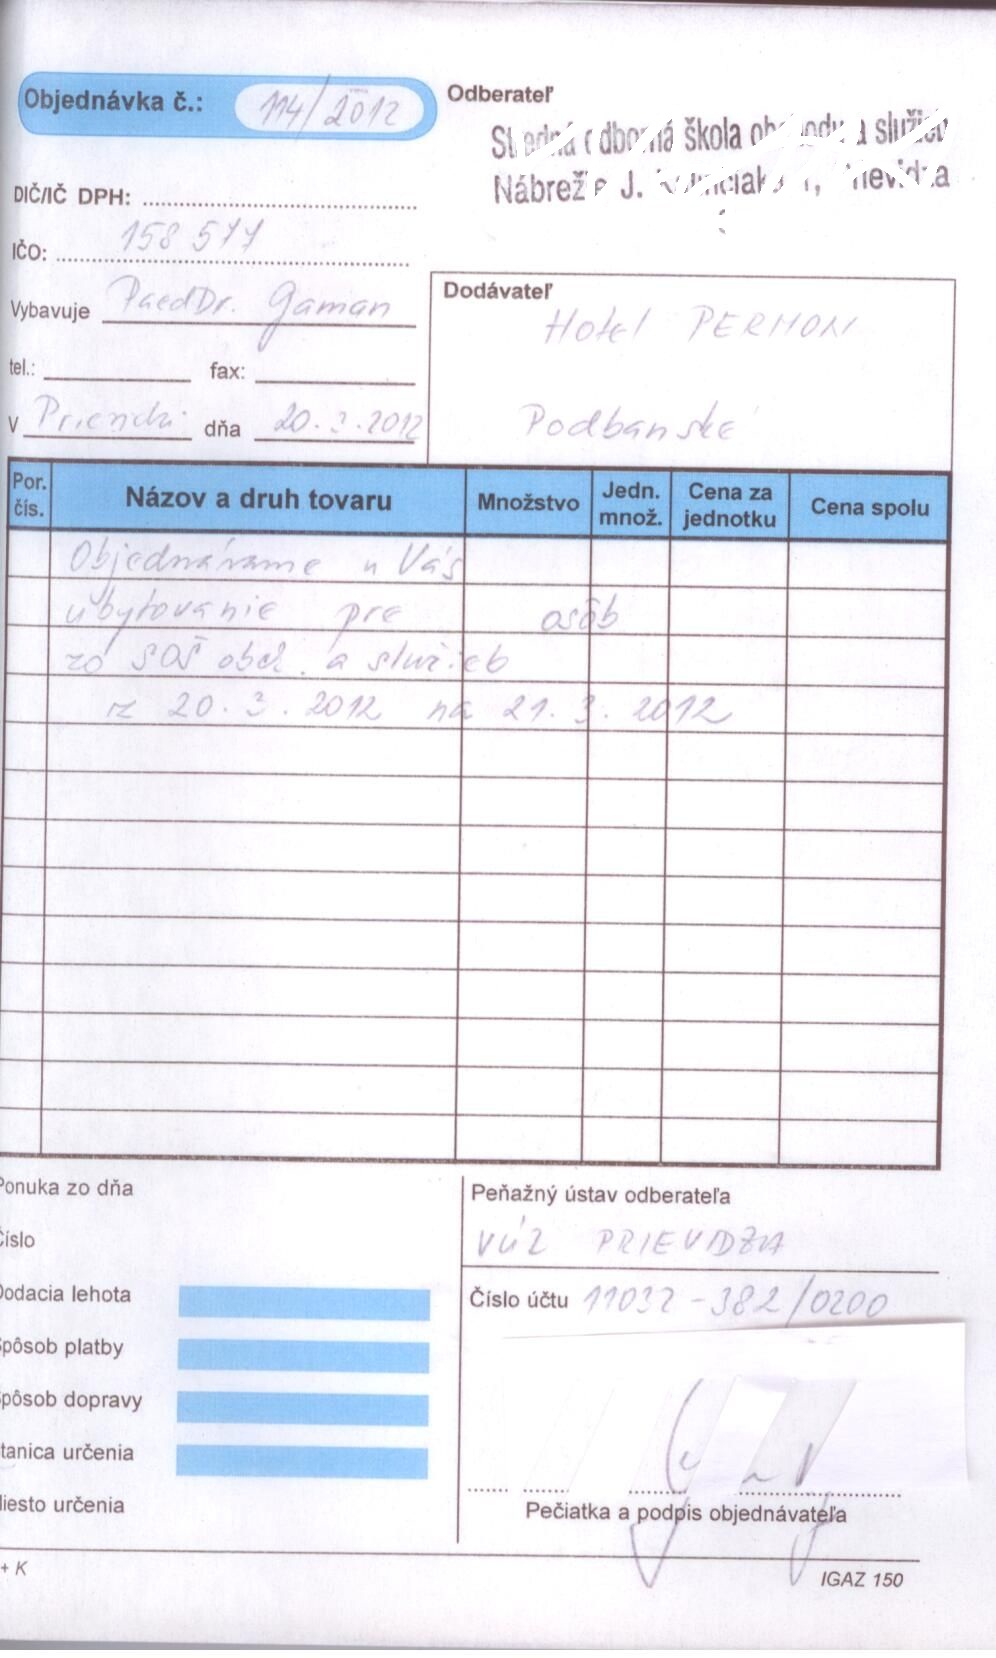 Objednávka č.: 114/2012
Odberateľ
Stredná odborná škola obchodu a služieb
Nábrežie J. Prievidza
DIČ/IČ DPH:
IČO: 158 577
Vybavuje PaedDr. Gaman
tel.: fax:
V dňa 20.3.2012
Dodávateľ
Hotel PERMON
Podbanské
Por. čís. Názov a druh tovaru Množstvo Jedn. množ. Cena za jednotku Cena spolu
Objednávame u Vás
ubytovanie pre osôb
zo SOŠ obch. a služieb
z 20.3.2012 na 21.3.2012
Ponuka zo dňa
Číslo
Dodacia lehota
Spôsob platby
Spôsob dopravy
Stanica určenia
Miesto určenia
Peňažný ústav odberateľa
VÚZ PRIEVIDZA
Číslo účtu 11032-382/0200
Pečiatka a podpis objednávateľa
+ K
IGAZ 150